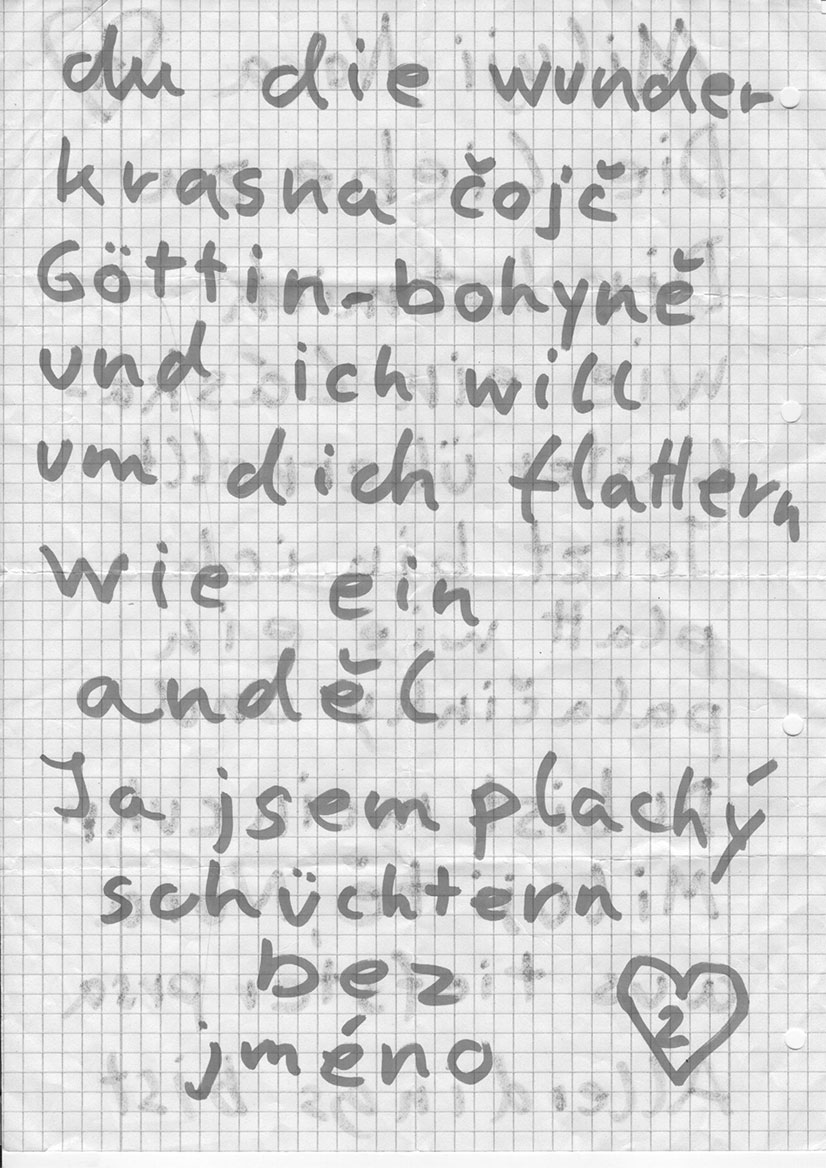 du die wunder
krasna čojč
Göttin-bohyně
und ich will
um dich flattern
wie ein
anděl
Ja jsem plachý
schüchtern
bez
jméno
2